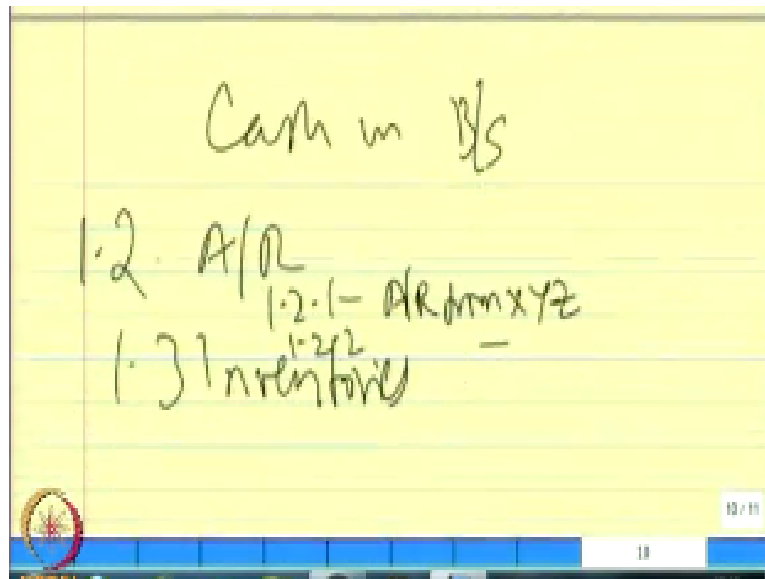 Cash in B/S
1.2. A/R
1.2.1 - A/R from XYZ
1.2.2 -
1.3 Inventories
10 / 11
10